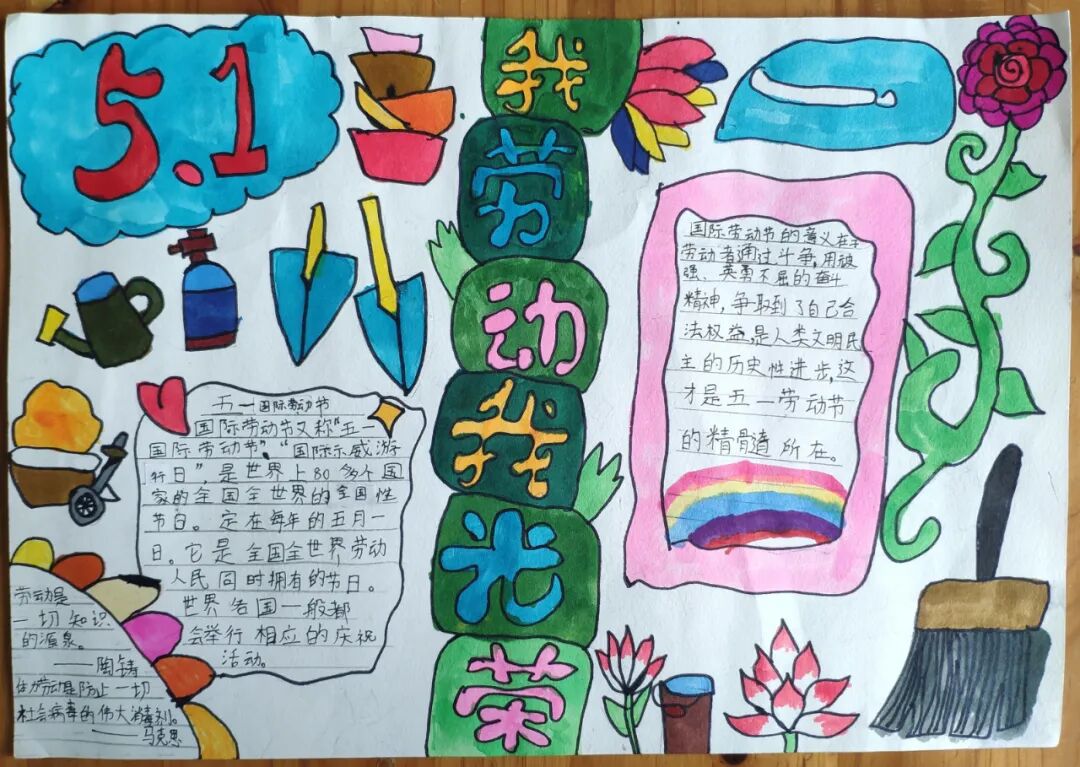 5.1
我劳动我光荣
五一国际劳动节
国际劳动节又称“五一
国际劳动节”，“国际示威游
行日”，是世界上80多个国
家的全国全世界的全国性
节日。定在每年的五月一
日。它是全国全世界劳动
人民同时拥有的节日。
世界各国一般都
会举行相应的庆祝
活动。
劳动是
一切知识
的源泉。
——陶铸
体力劳动是防止一切
社会病毒的伟大消毒剂。
——马克思
国际劳动节的意义在于
劳动者通过斗争，用顽
强、英勇不屈的奋斗
精神，争取到了自己合
法权益，是人类文明民
主的历史性进步，这
才是五一劳动节
的精髓所在。